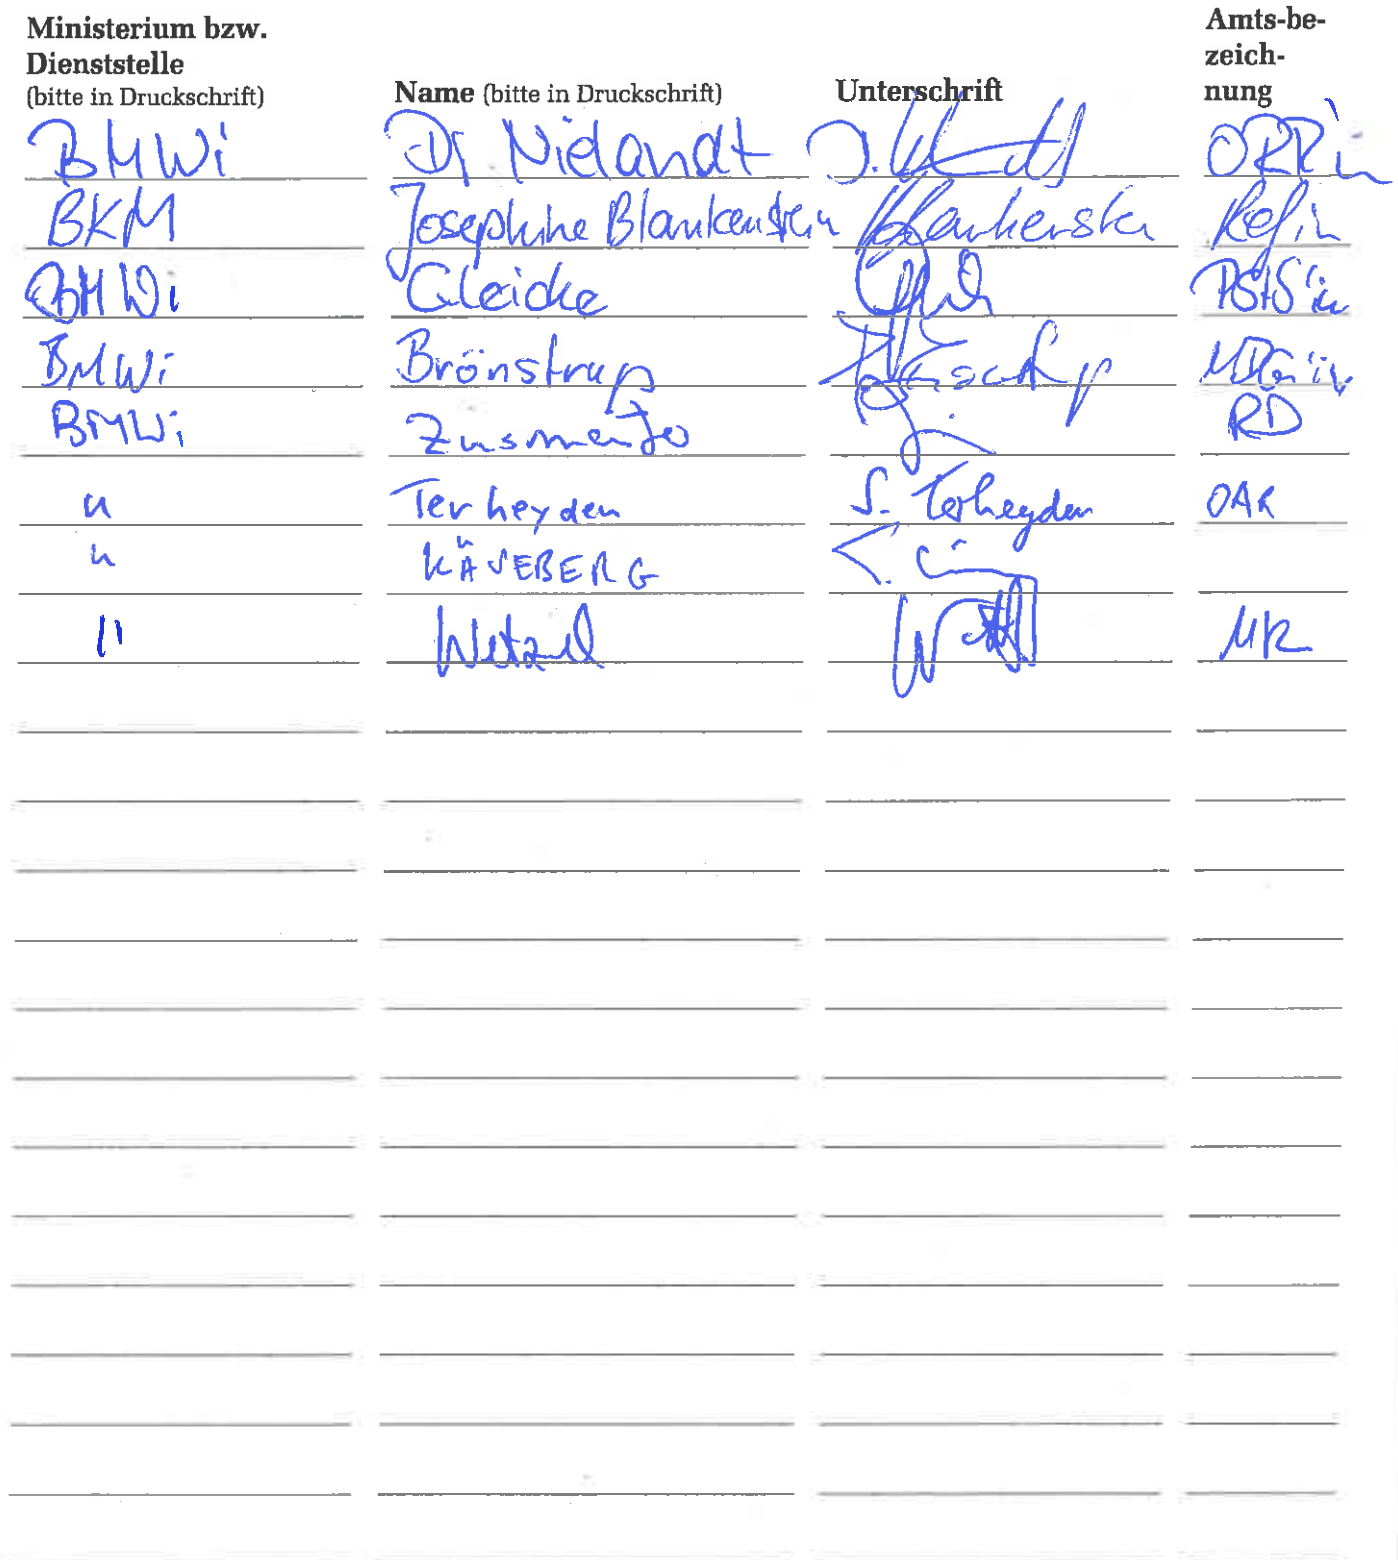 Ministerium bzw.
Dienststelle
(bitte in Druckschrift)
Name (bitte in Druckschrift)
Unterschrift
Amts-be-
zeich-
nung
BMWi Nielandt ORRin
BKM Josephine Blankenstein Refin
BMWi Gleicke PStS'in
BMWi Brönstrup MDG'in
BMWi RD
" Terheyden S. Terheyden OAR
" KÄSEBERG
" Wetzel MR